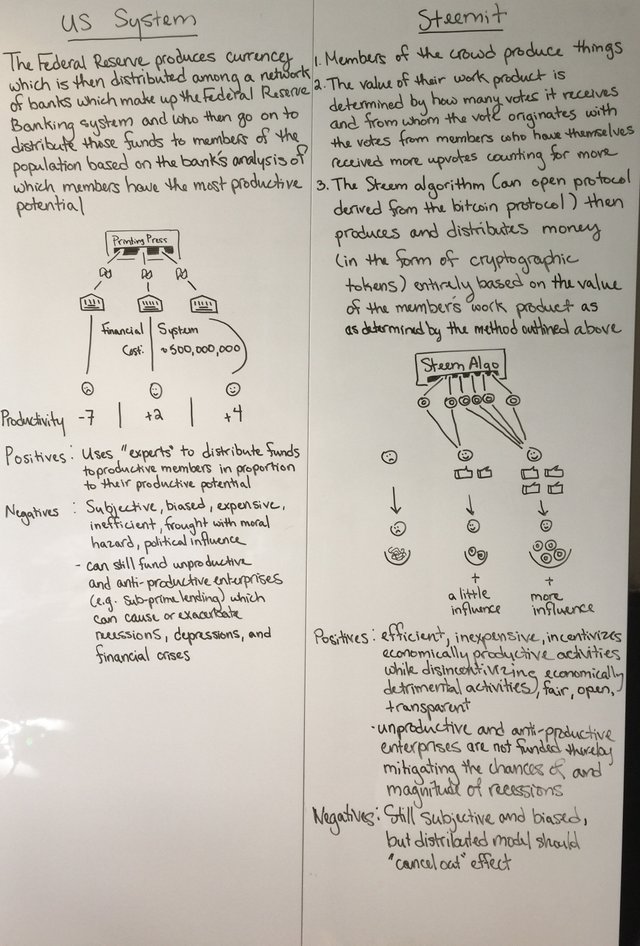 US System
The Federal Reserve produces currency
which is then distributed among a network
of banks which make up the Federal Reserve
Banking system and who then go on to
distribute those funds to members of the
population based on the bank's analysis of
which members have the most productive
potential
Printing Press
Financial System
Cost: ~500,000,000
Productivity -7 | +2 | +4
Positives: Uses "experts" to distribute funds
to productive members in proportion
to their productive potential
Negatives : Subjective, biased, expensive,
inefficient, frought with moral
hazard, political influence
- can still fund unproductive
and anti-productive enterprises
(e.g. sub-prime lending) which
can cause or exacerbate
recessions, depressions, and
financial crises
Steemit
1. Members of the crowd produce things
2. The value of their work product is
determined by how many votes it receives
and from whom the vote originates with
the votes from members who have themselves
received more upvotes counting for more
3. The Steem algorithm (an open protocol
derived from the bitcoin protocol) then
produces and distributes money
(in the form of cryptographic
tokens) entirely based on the value
of the member's work product as
as determined by the method outlined above
Steem Algo
+ +
a little more
influence influence
Positives: efficient, inexpensive, incentivizes
economically productive activities
while disincentivizing economically
detrimental activities, fair, open,
transparent
- unproductive and anti-productive
enterprises are not funded thereby
mitigating the chances of and
magnitude of recessions
Negatives: Still subjective and biased,
but distributed model should
"cancel out" effect